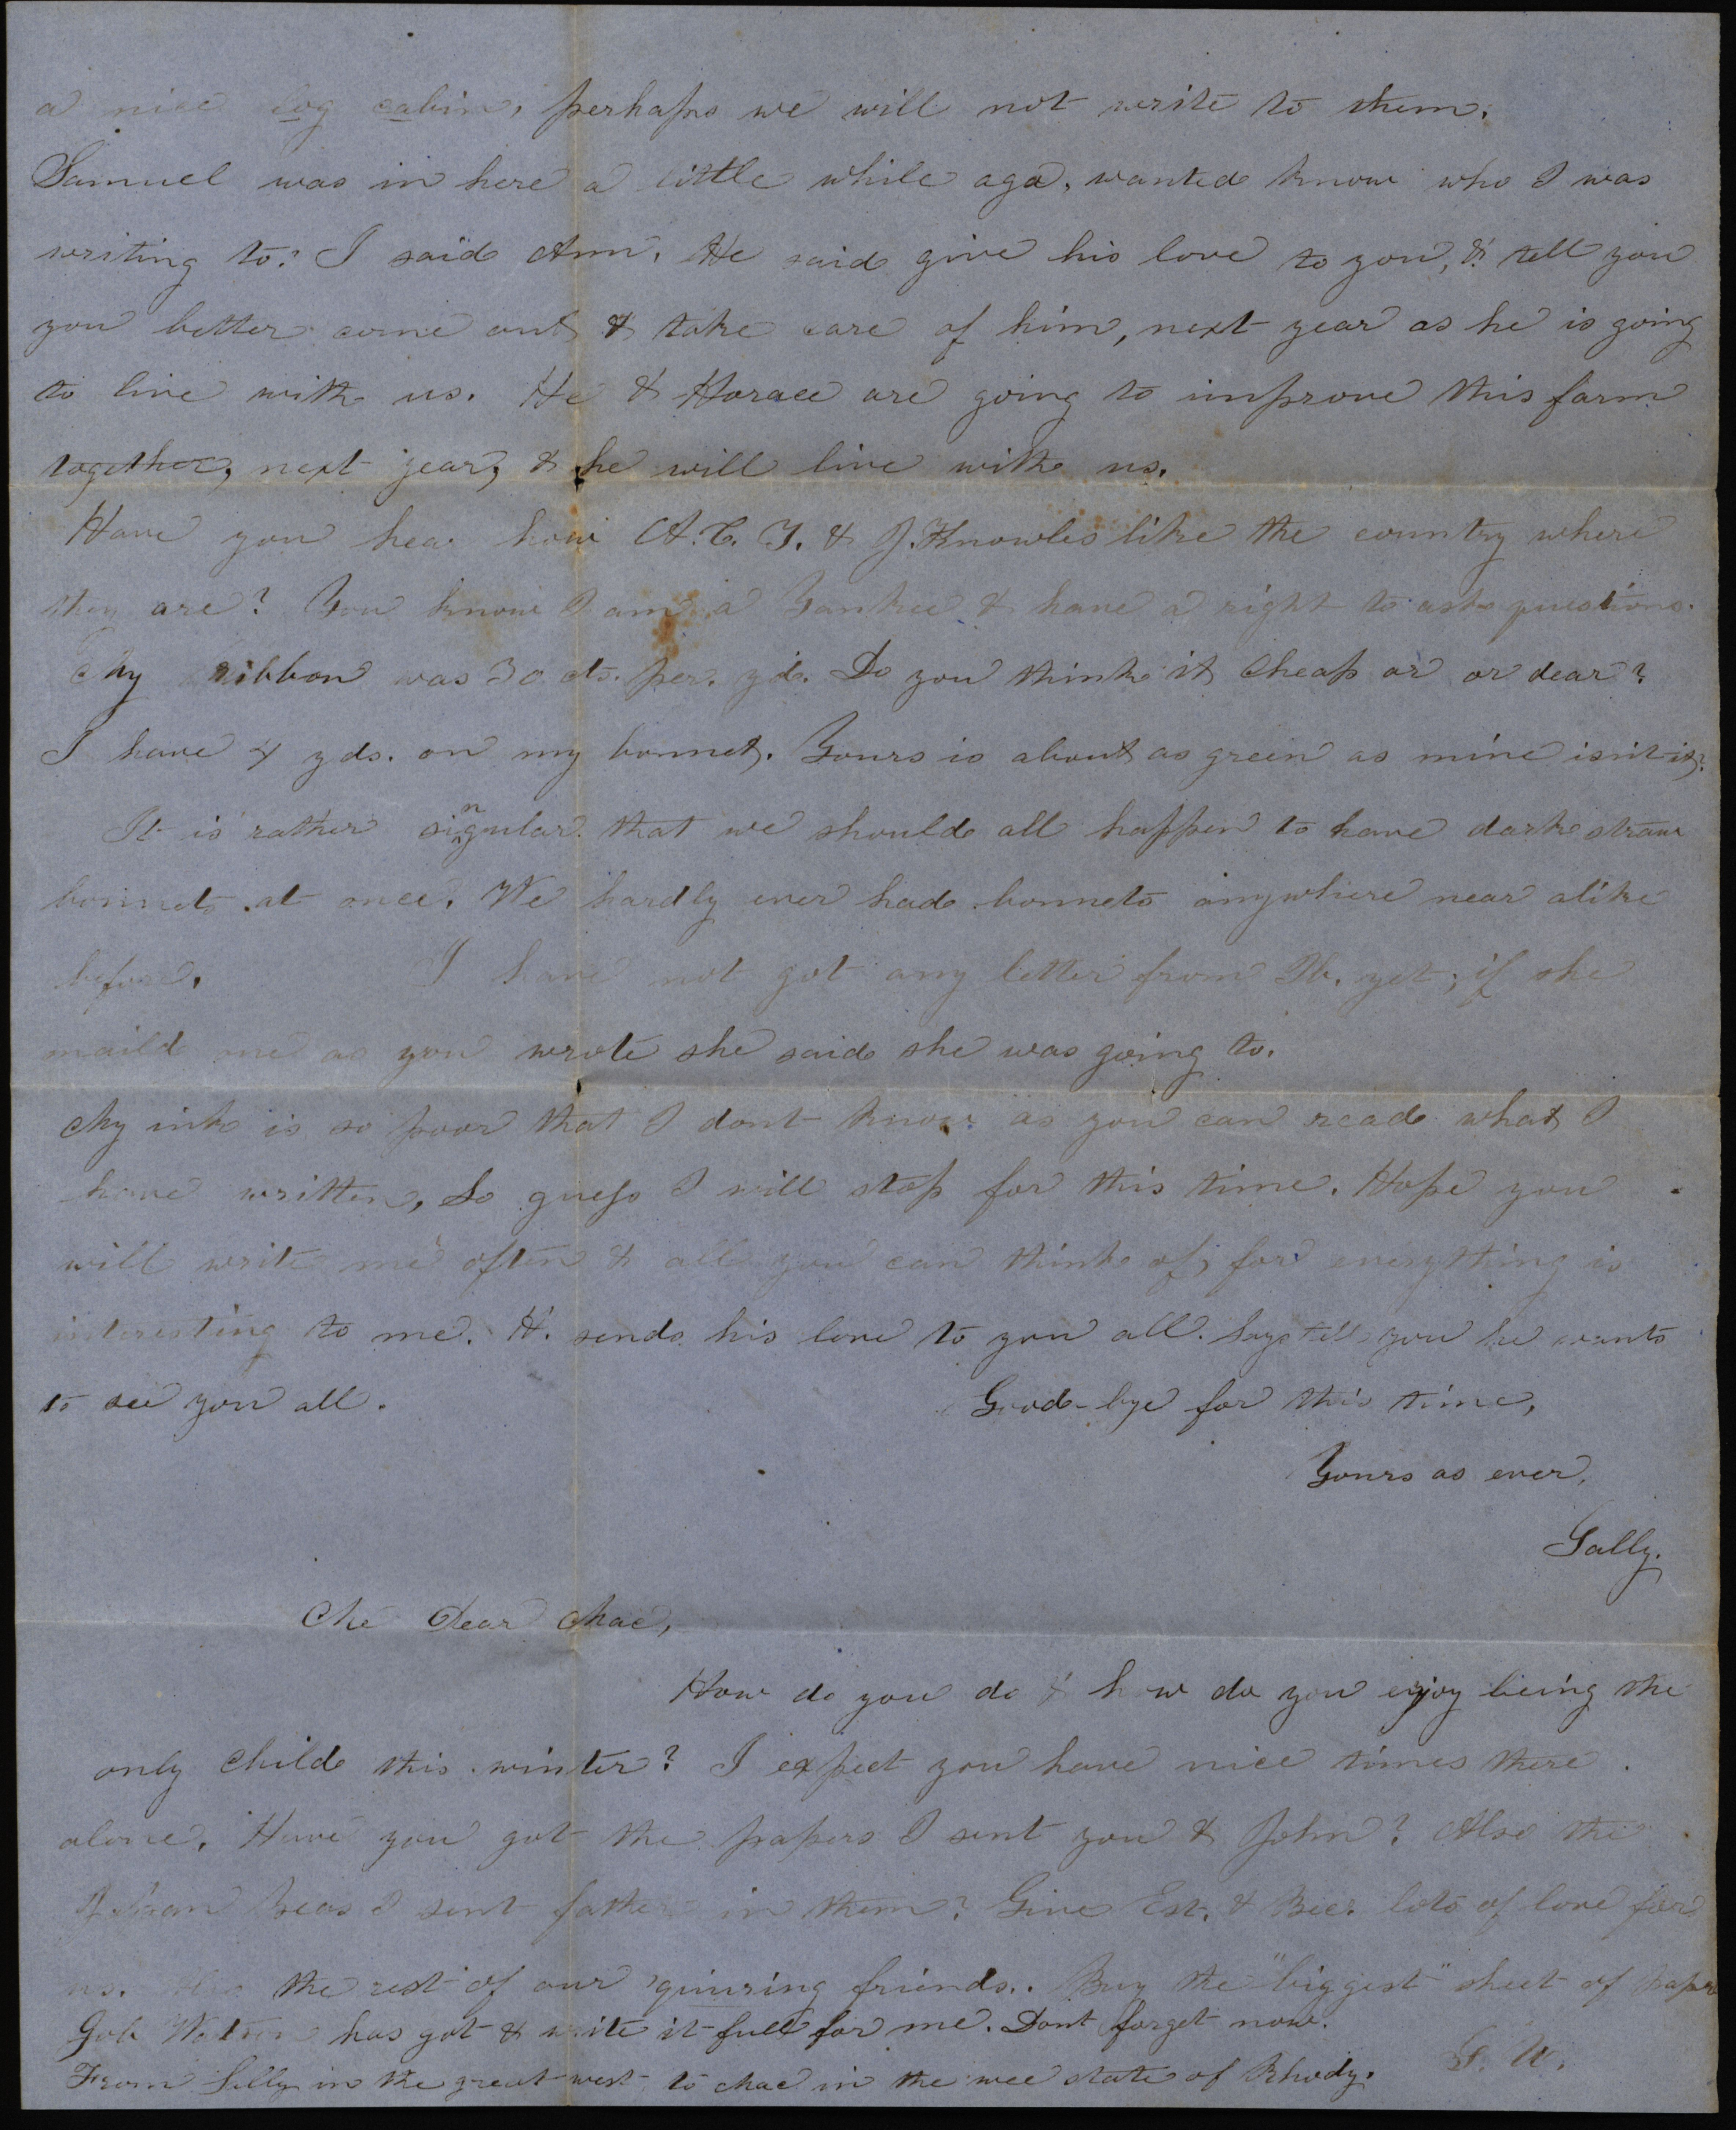 a nice log cabin, perhaps we will not write to them.
Samuel was in here a little while ago, wanted know who I was
writing to? I said Ann. He said give his love to you, & tell you
you better come out & take care of him, next year as he is going
to live with us. He & Horace are going to improve this farm
together, next year, & he will live with us.
Have you hear how A. C. T. & J. Knowles like the country where
they are? You know I am a Yankee & have a right to ask questions.
My ribbon was 30 cts. per. yd. Do you think it cheap or or dear?
I have 4 yds. on my bonnet. Yours is about as green as mine isn't it?
It is rather singular that we should all happen to have dark straw
bonnets at once. We hardly ever had bonnets anywhere near alike
before. I have not got any letter from Th. yet; if she
maild me as you wrote she said she was going to.
My ink is so poor that I dont know as you can read what I
have written, So guess I will stop for this time. Hope you
will write me often & all you can think of, for everything is
interesting to me. H. sends his love to you all. Says tell you he wants
to see you all. Good-bye for this time,
Yours as ever,
Sally.
Me Dear Mac,
How do you do & how do you enjoy being the
only child this winter? I expect you have nice times there
alone. Have you got the papers I sent you & John? Also the
Beas I sent father in them? Give Est. & Bec. lots of love for
us. the rest of our 'quiring friends. Buy the "biggest" sheet of paper
Job Watson has got & write it full for me. Dont forget now.
From Sally in the great west to Mac in the wee state of Rhody. S. W.